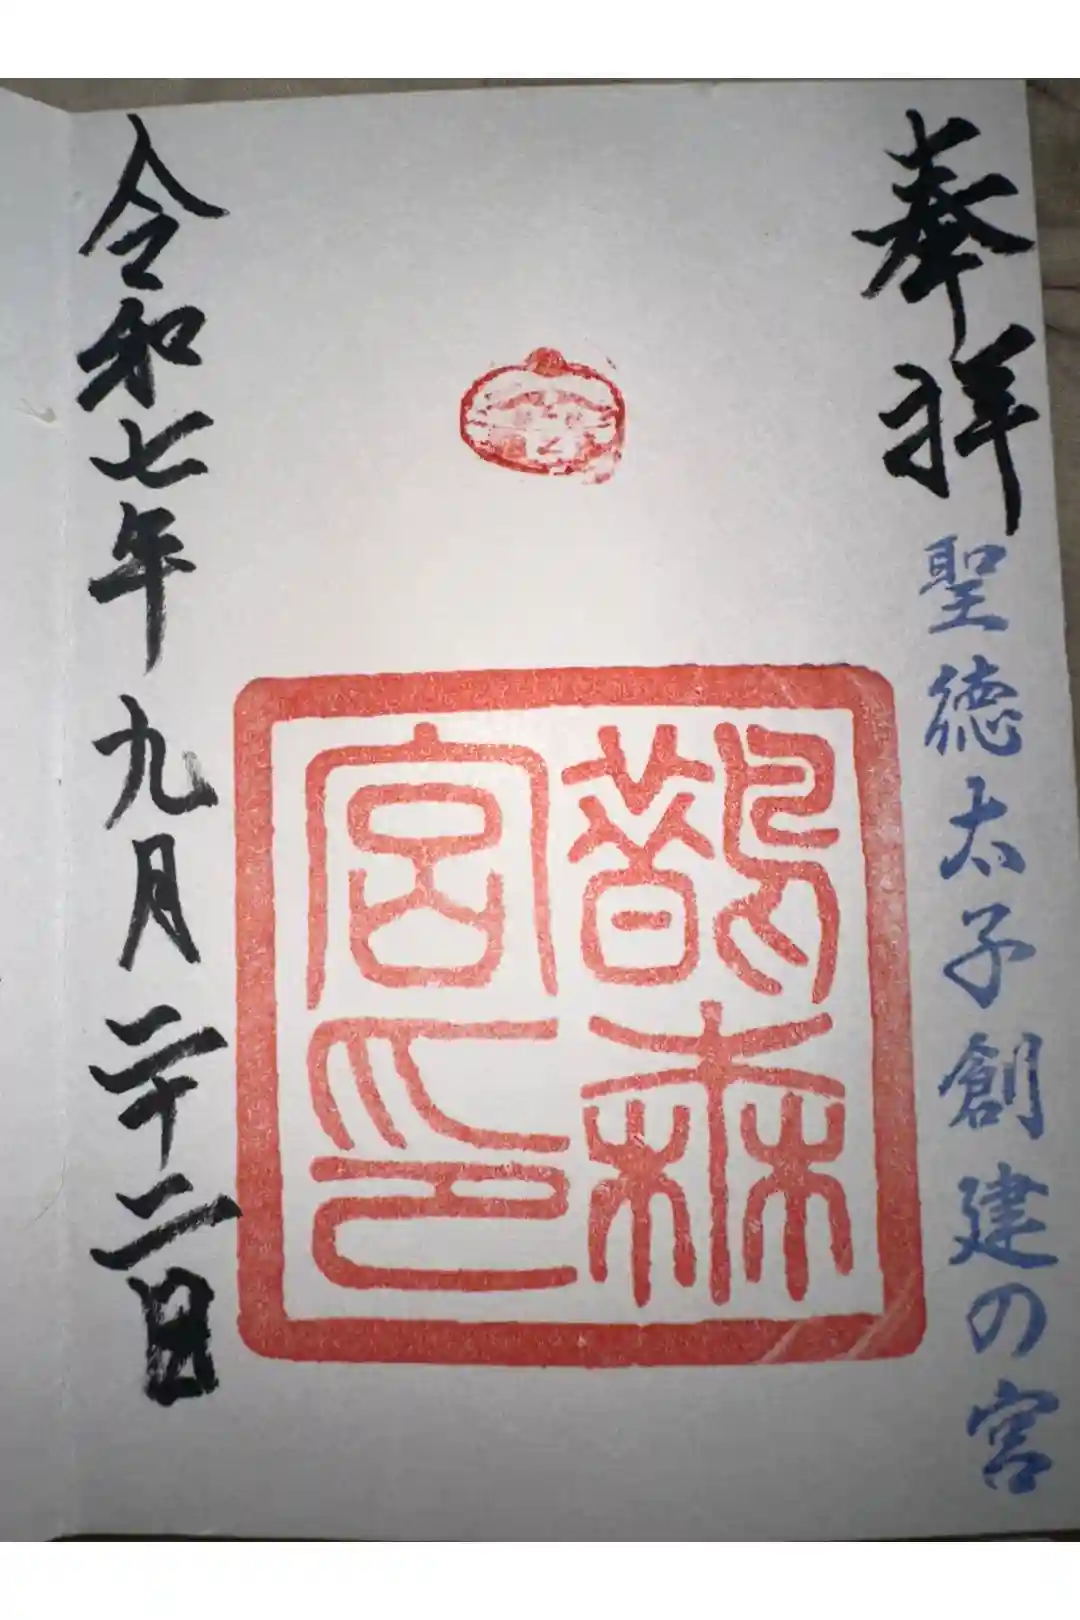 奉拝
聖徳太子創建の宮
鵲森宮印
令和七年九月二十二日